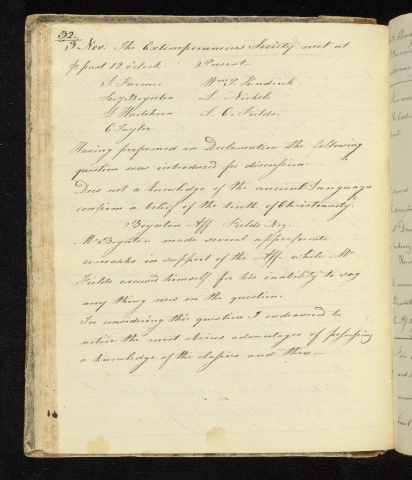 32.
3 Nov. The Extemporaneous Society met at
½ past 12 o'clock. Present
J. Farmer Wm. P. Kendrick
Boynton L. Nichols
Hartshorn T. C. Fields.
C. Taylor
Having performed in Declamation the following
question was introduced for discussion.
Does not a knowledge of the ancient Language
confirm a belief of the truth of Christianity.
Boynton Aff Fields Neg.
Mr Boynton made several appropriate
remarks in support of the Aff. while Mr
Fields excused himself for his inability to say
any thing new on the question.
In considering this question I endeavored to
notice the most obvious advantages of possessing
a knowledge of the classics and then